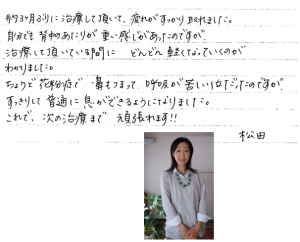 約3ヶ月ぶりに治療して頂いて、疲れがすっかり取れました。
自分でも背中のあたりが重い感じがあったのですが、
治療して頂いている間に どんどん軽くなっていくのが
わかりました。
ちょうど花粉症で 鼻もつまって、呼吸が苦しい位だったのですが、
すっきりして普通に息ができるようになりました。
これで、次の治療まで 頑張れます!!
松田